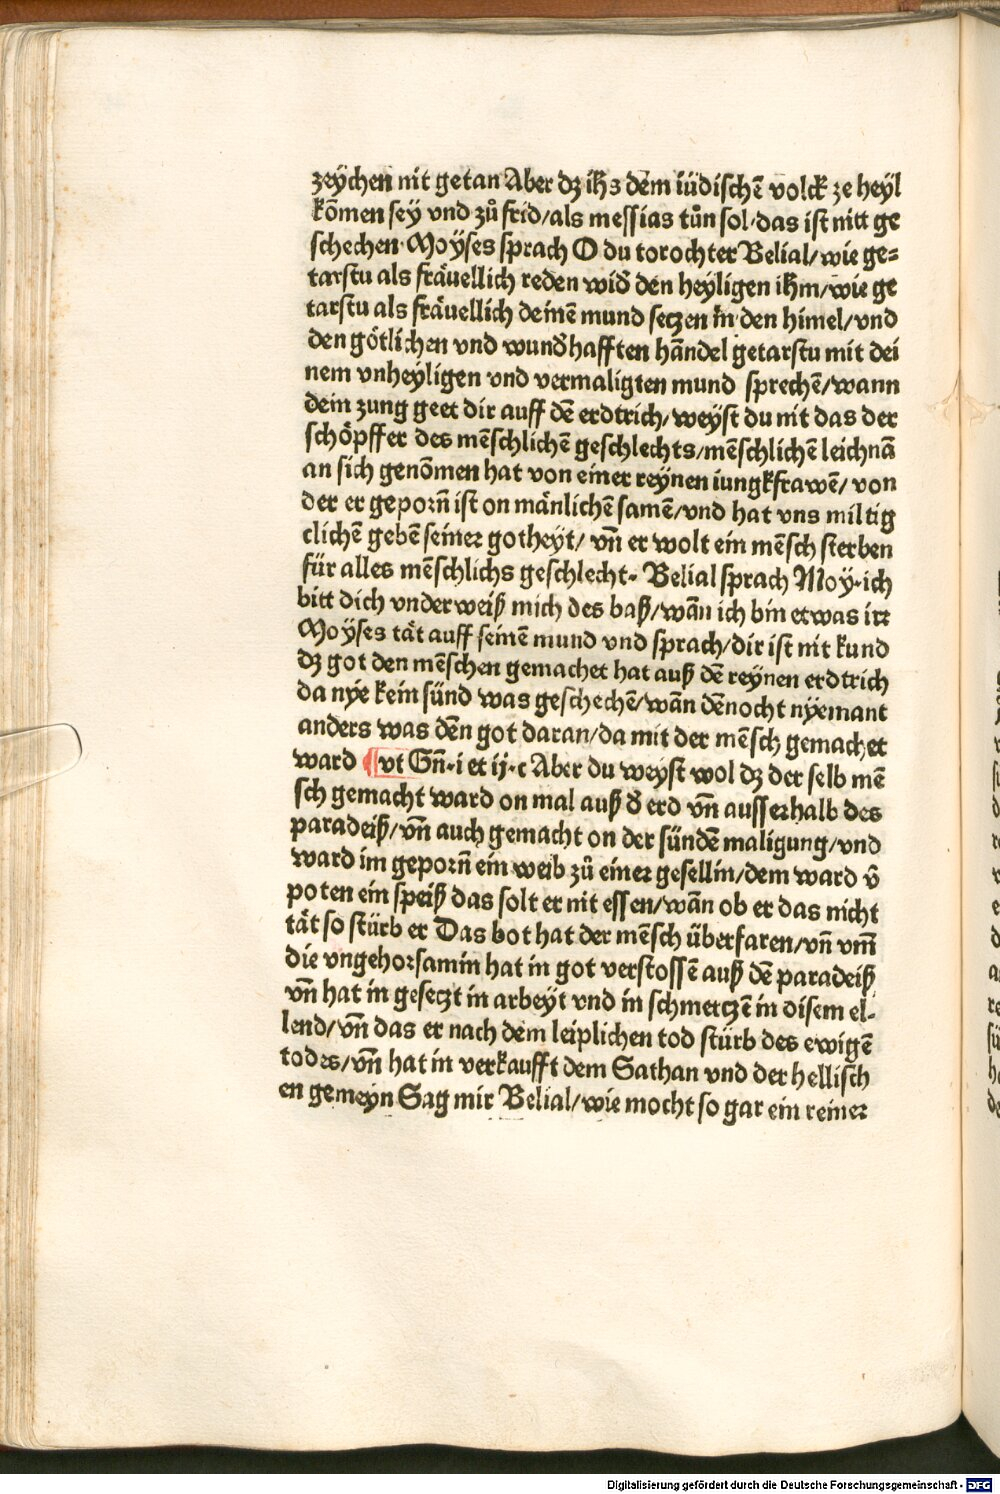 zeychen nit getan Aber dz ihs dem iüdischē volck ze heyl
kōmen sey vnd zů frid/als messias tůn sol·das ist nitt ge
schechen·Moÿses sprach O du torochter Belial/wie ge=
tarstu als fräuellich reden wid̄ den heyligen ihm/wie ge
tarstu als fräuellich deinē mund setzen in den himel/vnd
den götlichen vnd wund̄hafften hāndel getarstu mit dei
nem vnheyligen vnd vermaligten mund sprechē/wann
dein zung geet dir auff dē erdtrich/weyst du nit das der
schöpffer des mēschlichē geschlechts/mēschlichē leichnā
an sich genōmen hat von einer reynen iungkfrawē/von
der er geporn̄ ist on mänlichē samē/vnd hat vns miltig
clichē gebē seiner gotheyt/ vn̄ er wolt ein mēsch sterben
für alles mēschlichs geschlecht· Belial sprach Moy·ich
bitt dich vnderweiß mich des baß/wān ich bin etwas irr
Moÿses tät auff seinē mund vnd sprach/dir ist nit kund
dz got den mēschen gemachet hat auß dē reynen erdtrich
da nye kein sünd was geschechē/wān dēnocht nÿemant
anders was dēn got daran/da mit der mēsch gemachet
ward ¶vt Gn̄·i et ij·c Aber du weyst wol dz der selb mē
sch gemacht ward on mal auß d̄ erd vn̄ ausserhalb des
paradeiß/vn̄ auch gemacht on der sündē maligung/vnd
ward im geporn̄ ein weib zů einer gesellin/dem ward v̄
poten ein speiß das solt er nit essen/wān ob er das nicht
tät so stürb er Das bot hat der mēsch überfaren/vn̄ vm̄
die vngehorsamin hat in got verstossē auß dē paradeiß
vn̄ hat in gesetzt in arbeyt vnd in schmertzē in disem el-
lend/vn̄ das er nach dem leiplichen tod stürb des ewigē
todes/vn̄ hat in verkaufft dem Sathan vnd der hellisch
en gemeyn Sag mir Belial/wie mocht so gar ein reiner
Digitalisierung gefördert durch die Deutsche Forschungsgemeinschaft - DFG